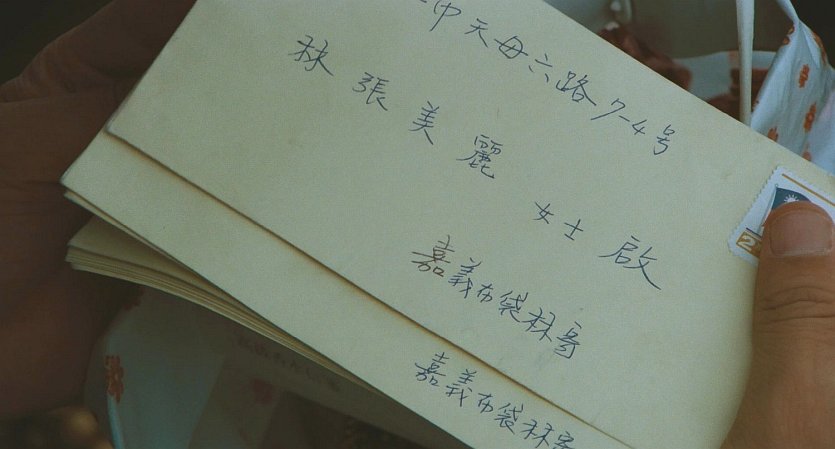 市天母六路7-4号
林張美麗 女士 啟
嘉義布袋林寄
嘉義布袋林寄
2